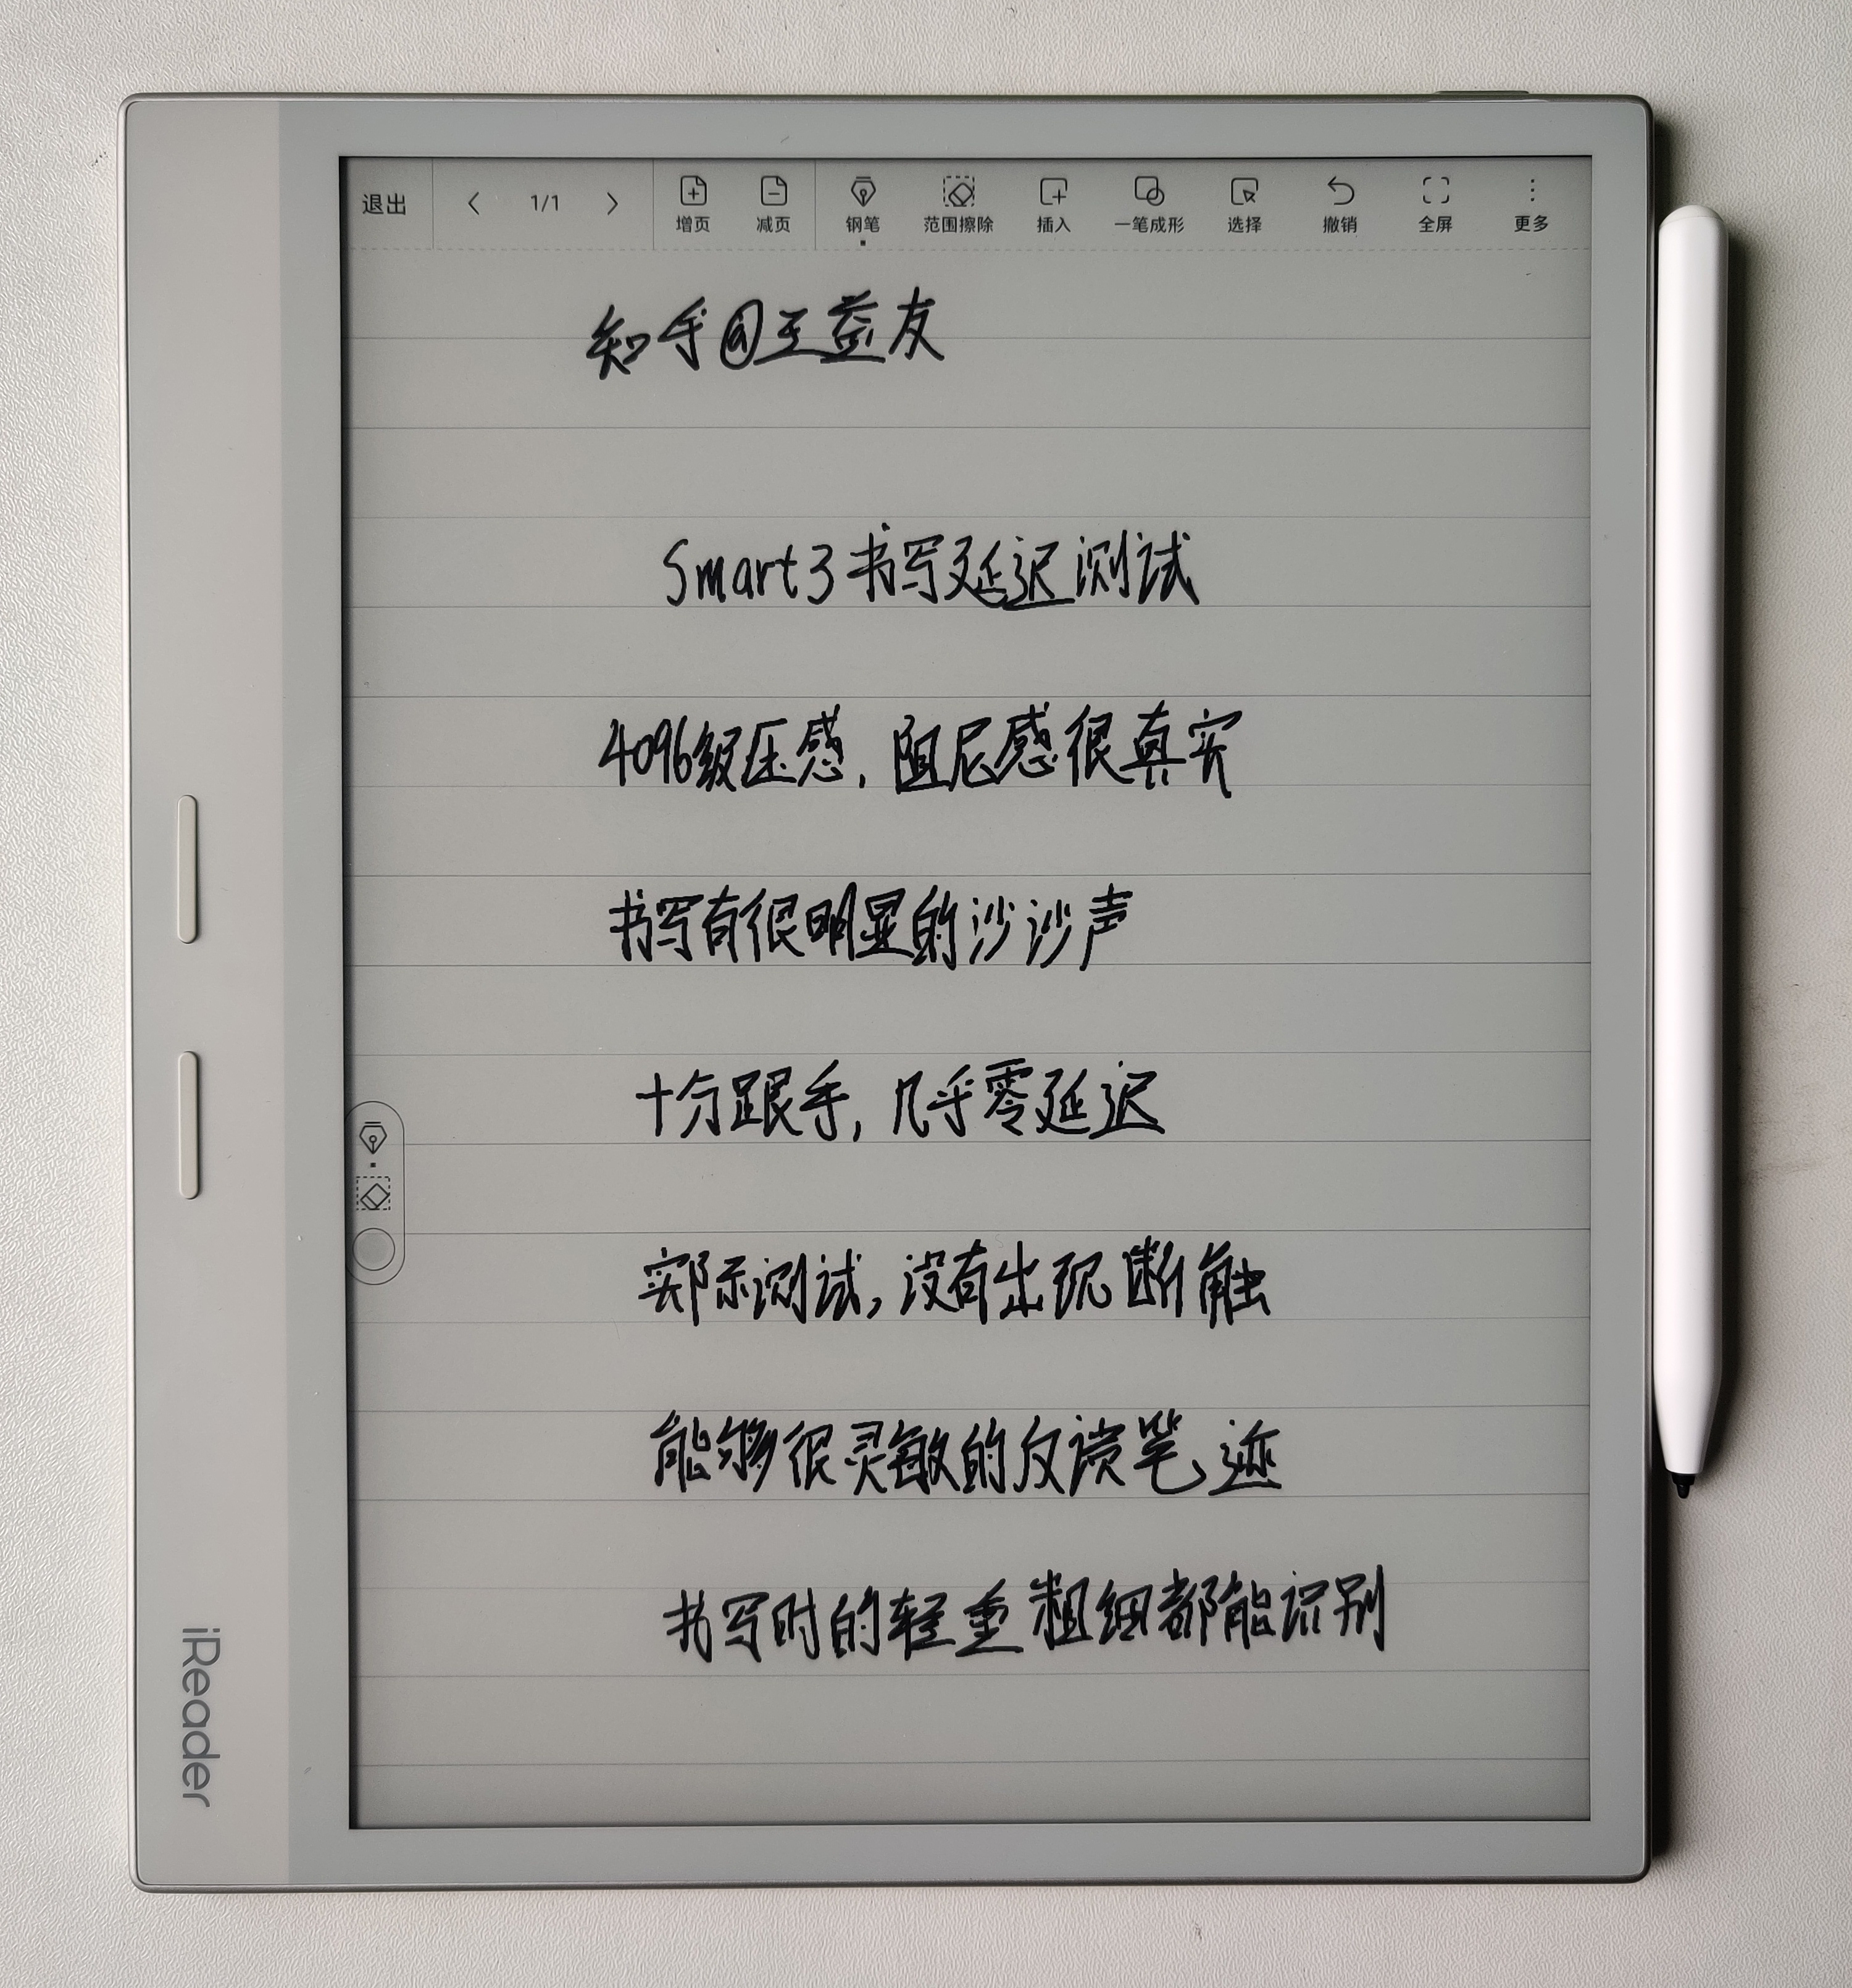 退出 1/1 增页 减页 钢笔 范围擦除 插入 一笔成形 选择 撤销 全屏 更多
知乎@王益友
Smart3书写延迟测试
4096级压感，阻尼感很真实
书写有很明显的沙沙声
十分跟手，几乎零延迟
实际测试，没有出现断触
能够很灵敏的反馈笔迹
书写时的轻重粗细都能识别
iReader